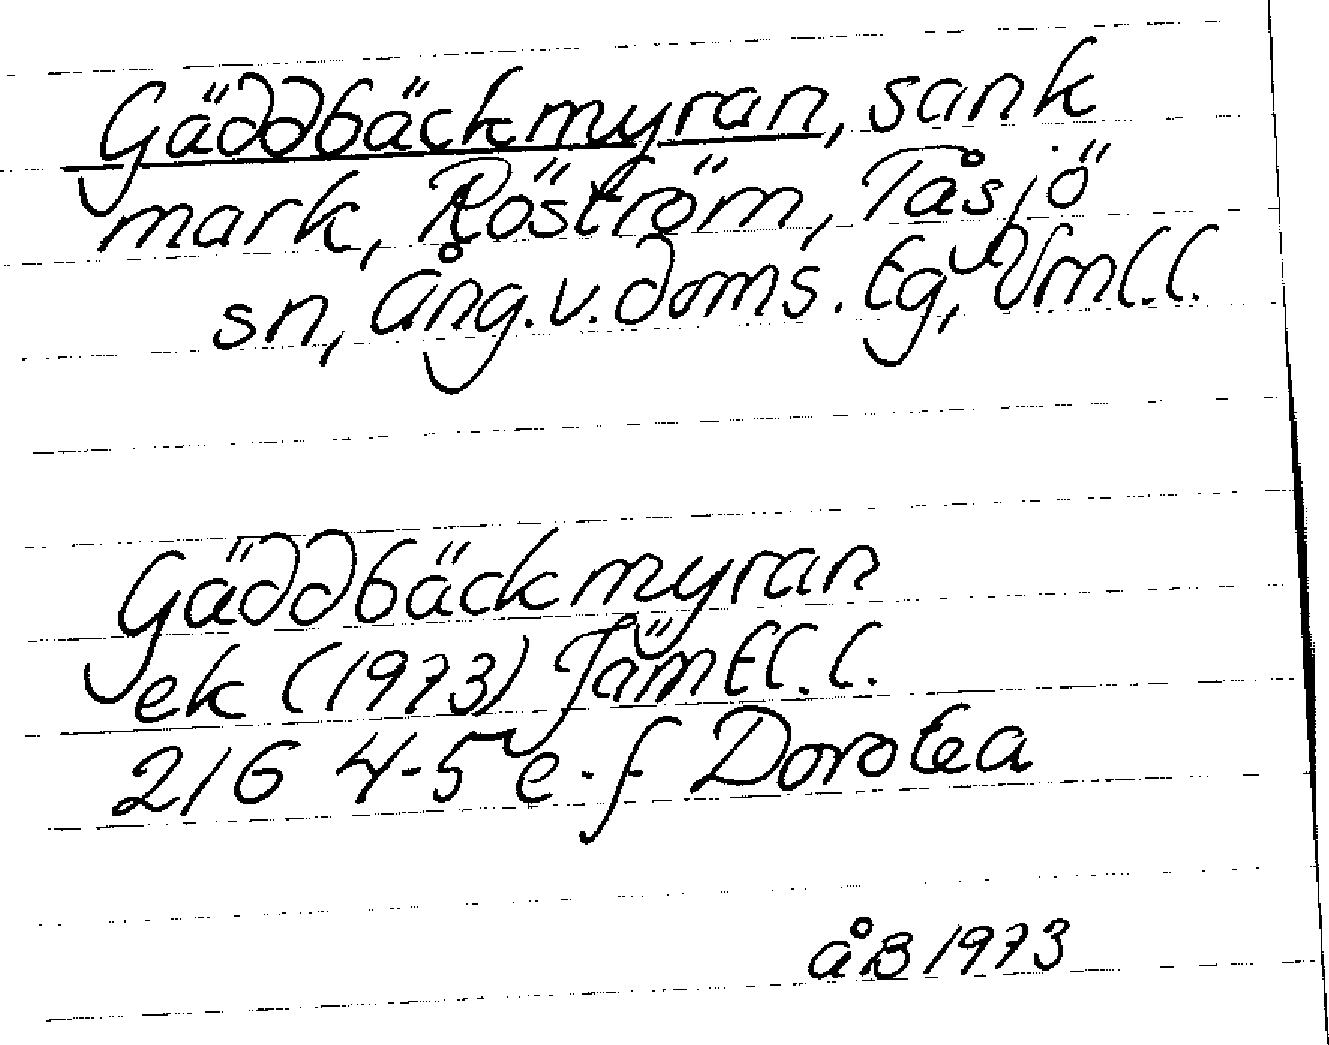 Gäddbäckmyran, sank
mark, Röström, Tåsjö
sn, Ång.v.doms. Eg, Vml.l.
Gäddbäckmyran
ek (1973) Jämtl.l.
216 4-5 e-f Dorotea
åB 1973